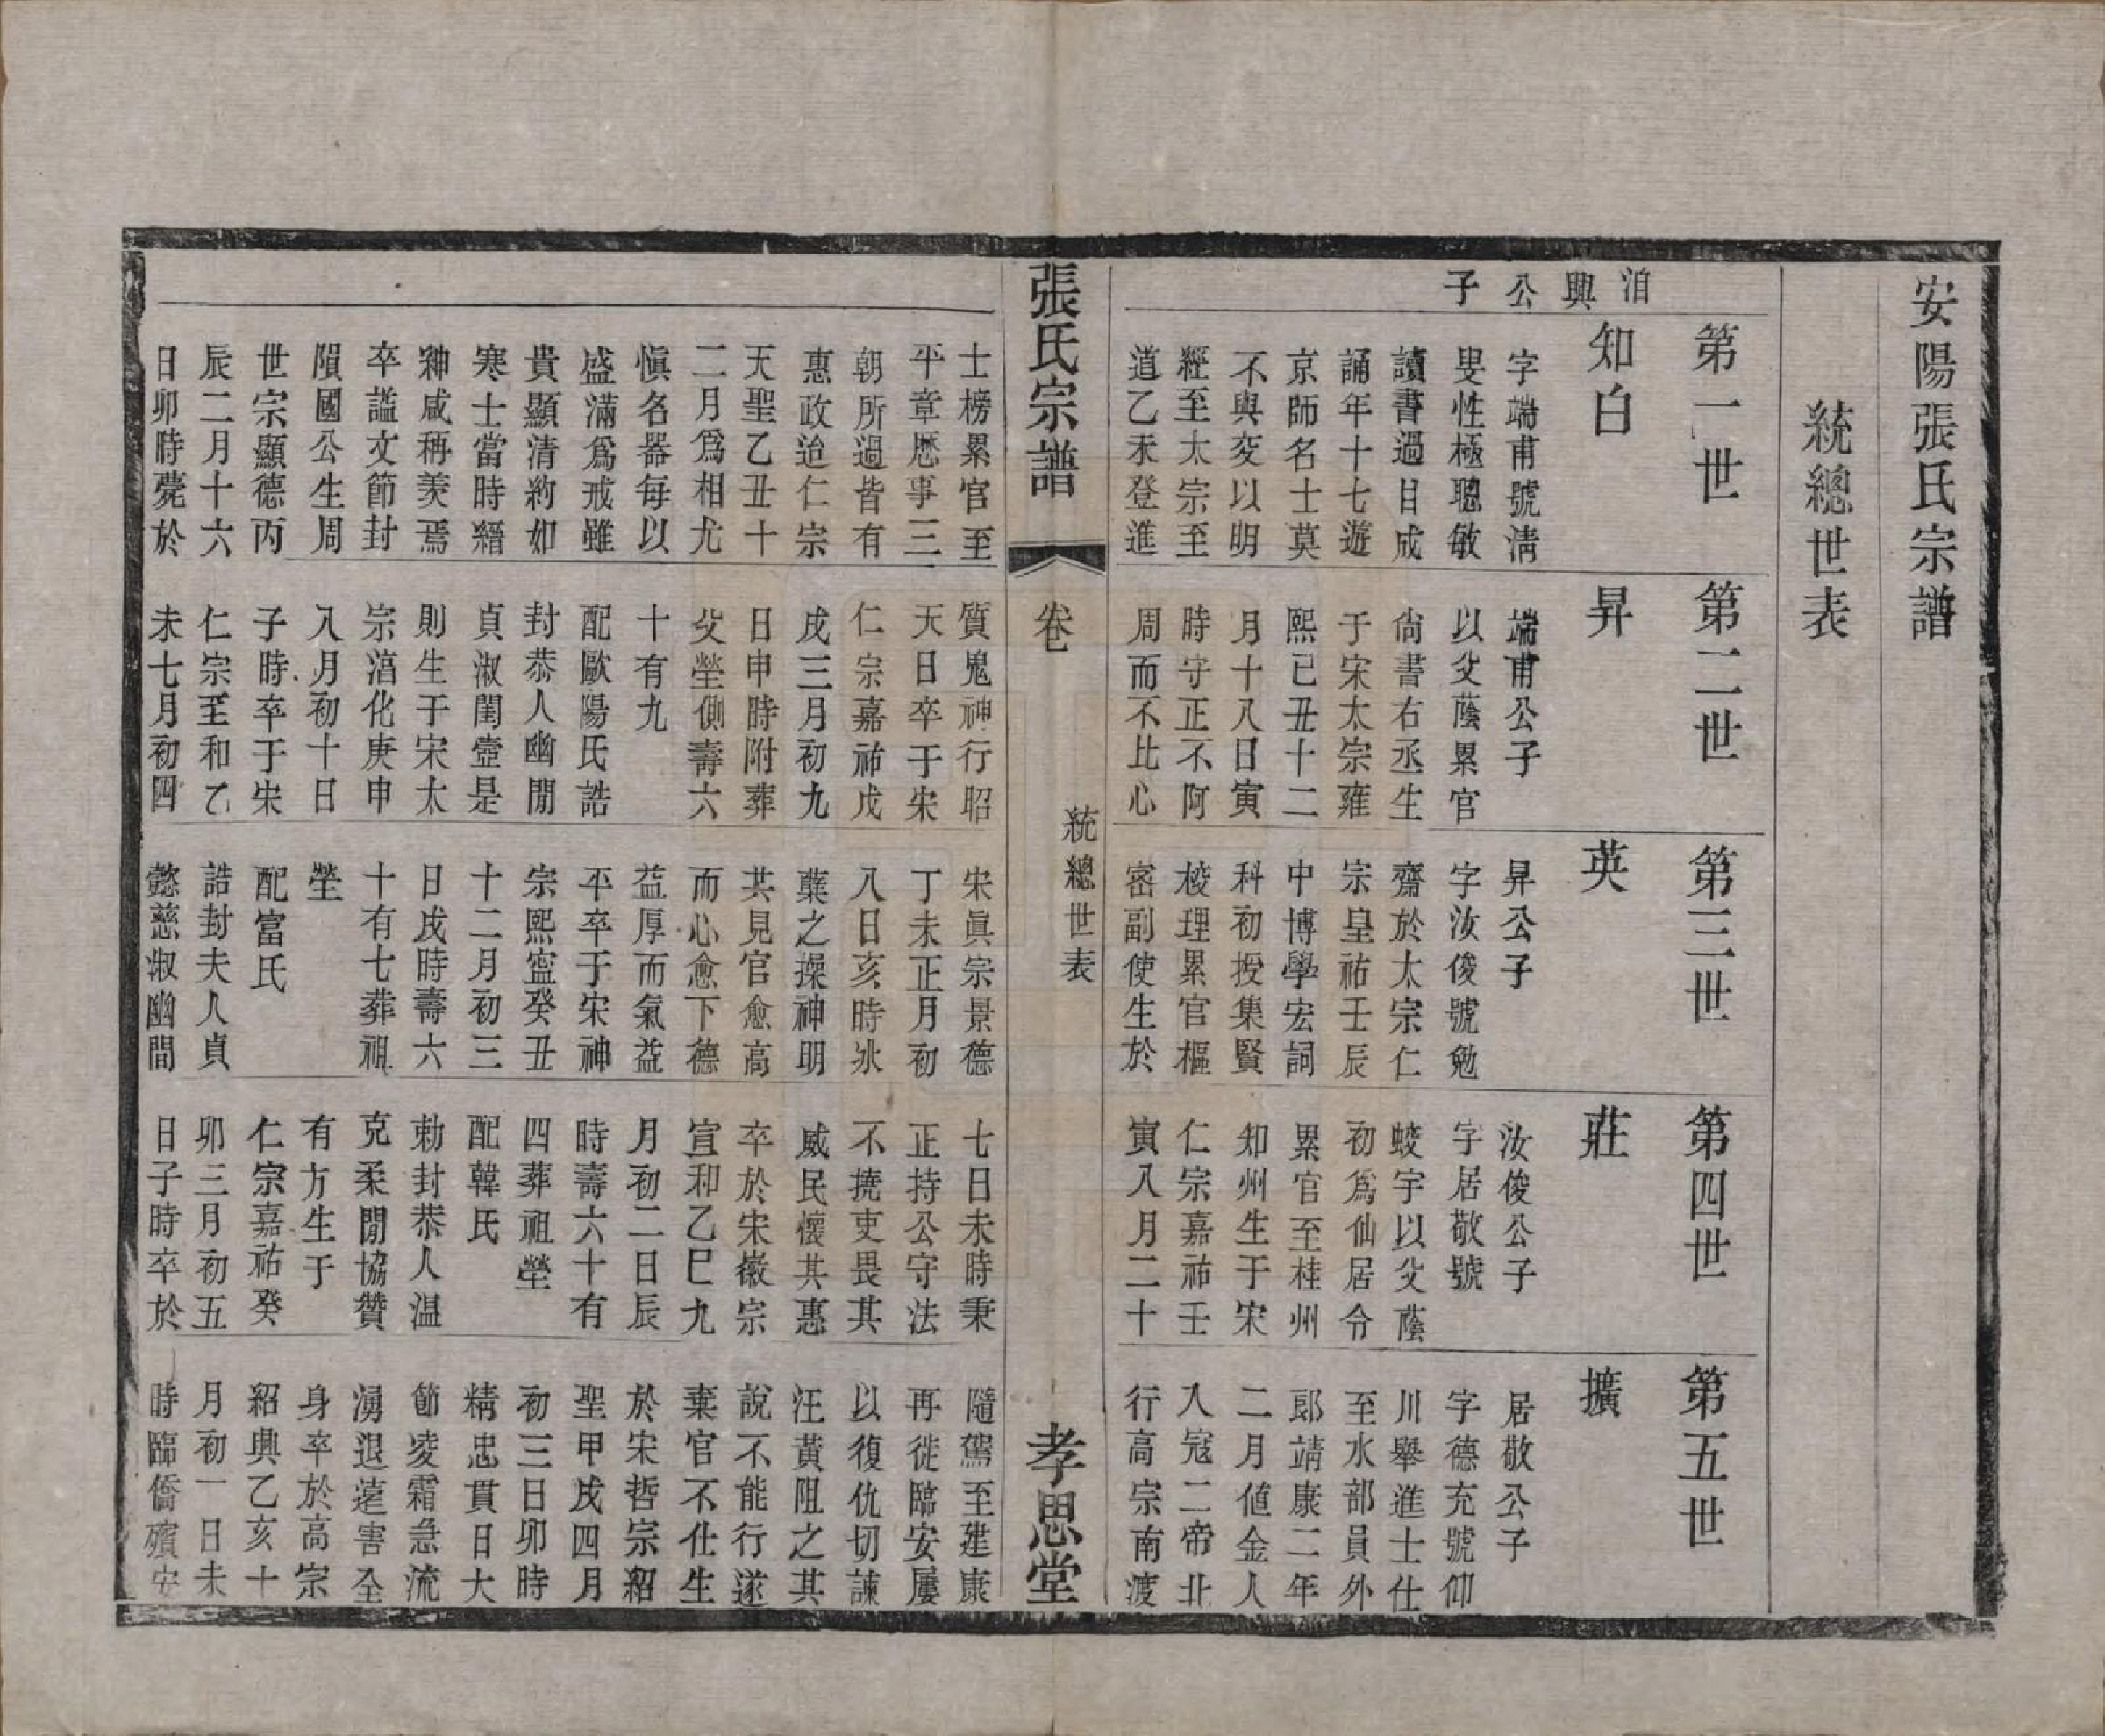 安陽張氏宗譜
統總世表
洎興公子
第一世
知白
字端甫號淸
叟性極聰敏
讀書過目成
誦年十七遊
京師名士莫
不與交以明
經至太宗至
道乙未登進
第二世
昇
端甫公子
以父蔭累官
尙書右丞生
于宋太宗雍
熙己丑十二
月十八日寅
時守正不阿
周而不比心
第三世
英
昇公子
字汝俊號勉
齋於太宗仁
宗皇祐壬辰
中博學宏詞
科初授集賢
校理累官樞
密副使生於
第四世
莊
汝俊公子
字居敬號
蛟宇以父蔭
初爲仙居令
累官至桂州
知州生于宋
仁宗嘉祐壬
寅八月二十
第五世
擴
居敬公子
字德充號仰
川舉進士仕
至水部員外
郎靖康二年
二月値金人
入寇二帝北
行高宗南渡
張氏宗譜
卷
統總世表
孝思堂
士榜累官至
平章歷事三
朝所過皆有
惠政迨仁宗
天聖乙丑十
二月爲相尤
愼名器每以
盛滿爲戒雖
貴顯清約如
寒士當時縉
紳咸稱羨焉
卒謚文節封
隕國公生周
世宗顯德丙
辰二月十六
日卯時薨於
質鬼神行昭
天日卒于宋
仁宗嘉祐戊
戌三月初九
日申時附葬
父塋側壽六
十有九
配歐陽氏誥
封恭人幽閒
貞淑閨壼是
則生于宋太
宗淳化庚申
八月初十日
子時卒于宋
仁宗至和乙
未七月初四
宋眞宗景德
丁未正月初
八日亥時氷
蘗之操神明
共見官愈高
而心愈下德
益厚而氣益
平卒于宋神
宗熙寍癸丑
十二月初三
日戌時壽六
十有七葬祖
塋
配富氏
誥封夫人貞
懿慈淑幽閒
七日未時秉
正持公守法
不撓吏畏其
威民懷其惠
卒於宋徽宗
宣和乙巳九
月初二日辰
時壽六十有
四葬祖塋
配韓氏
勅封恭人温
克柔閒協贊
有方生于
仁宗嘉祐癸
卯三月初五
日子時卒於
隨駕至建康
再徙臨安屢
以復仇切諫
汪黃阻之其
說不能行遂
棄官不仕生
於宋哲宗紹
聖甲戌四月
初三日卯時
精忠貫日大
節凌霜急流
湧退遠害全
身卒於高宗
紹興乙亥十
月初一日未
時臨僑殯安